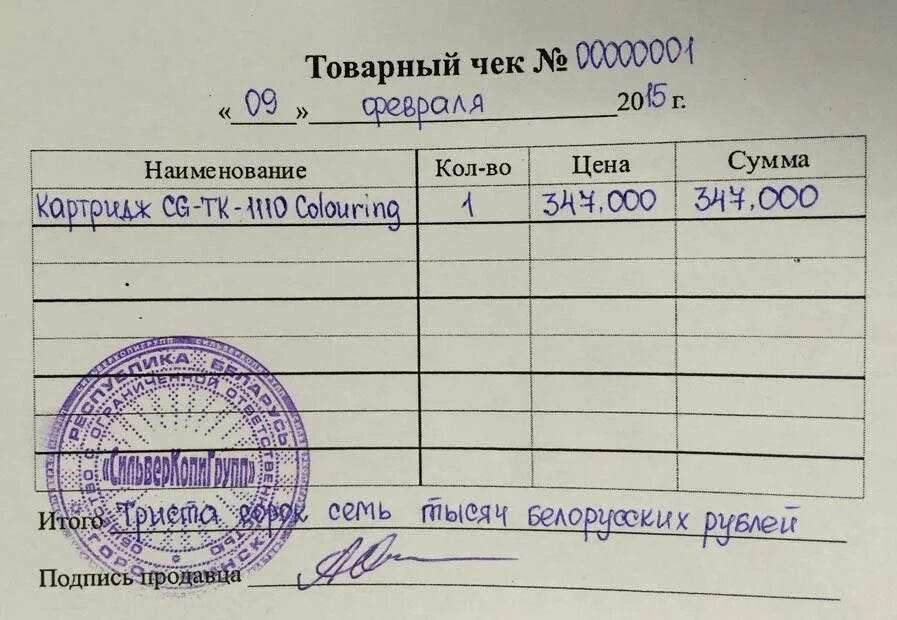 Товарный чек № 00000001
« 09 » февраля 2015 г.
Наименование Кол-во Цена Сумма
Картридж CG-TK-1110 Colouring 1 347,000 347,000
РЕСПУБЛИКА БЕЛАРУСЬ
ОБЩЕСТВО С ОГРАНИЧЕННОЙ ОТВЕТСТВЕННОСТЬЮ
«СильверКопиГрупп»
ГОРОД МИНСК
Итого Триста сорок семь тысяч белорусских рублей
Подпись продавца